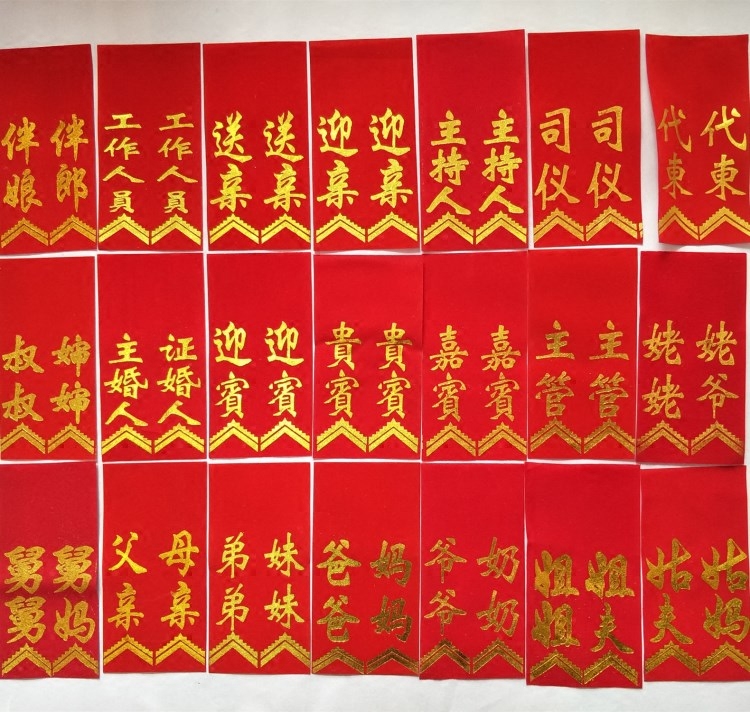 伴娘
伴郎
工作人員
工作人員
送亲
送亲
迎亲
迎亲
主持人
主持人
司仪
司仪
代東
代東
叔叔
婶婶
主婚人
证婚人
迎賓
迎賓
貴賓
貴賓
嘉賓
嘉賓
主管
主管
姥姥
姥爷
舅舅
舅妈
父亲
母亲
弟弟
妹妹
爸爸
妈妈
爷爷
奶奶
姐姐
姐夫
姑夫
姑妈